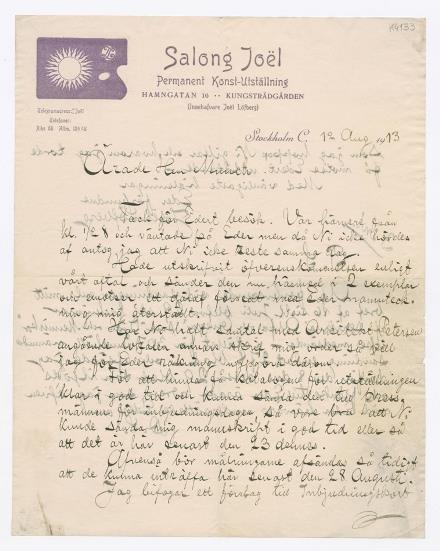 K4133
Salong Joël
Permanent Konst-Utställning
HAMNGATAN 16 · · KUNGSTRÄDGÅRDEN
(Innehafvare Joël Löfberg)
Telegramadress: Joël
Telefoner:
Stockholm C. 12 Aug 1913
Ärade Herr
Tack för Edert besök. Var härnere från
kl. 1/2 8 och väntade på Eder men då Ni icke hördes
af antog jag att Ni icke reste samma dag.
Hade utskrifvit öfverenskommelser enligt
vårt aftal och sänder den nu härmed i 2 exemplar
och emotser ett däraf försedt med Eder namnteck-
ning mig återställt.
Har Ni haft samtal med Arkitekt Petersen
angående lokalen annars skrif mig order så skall
jag för Eder räkning
För att hinna få katalogen för utställningen
klar i god tid och kunna sända den till Press-
männen för inbjudningsdagen, så vore bra att Ni
kunde sända mig manuskript i god tid eller så
att det är här senast den 23 dennes.
Äfvenså bör målningarne afsändas så tidigt
att de kunna inträffa här senast den 28 Augusti.
Jag bifogar ett förslag till Inbjudningskort